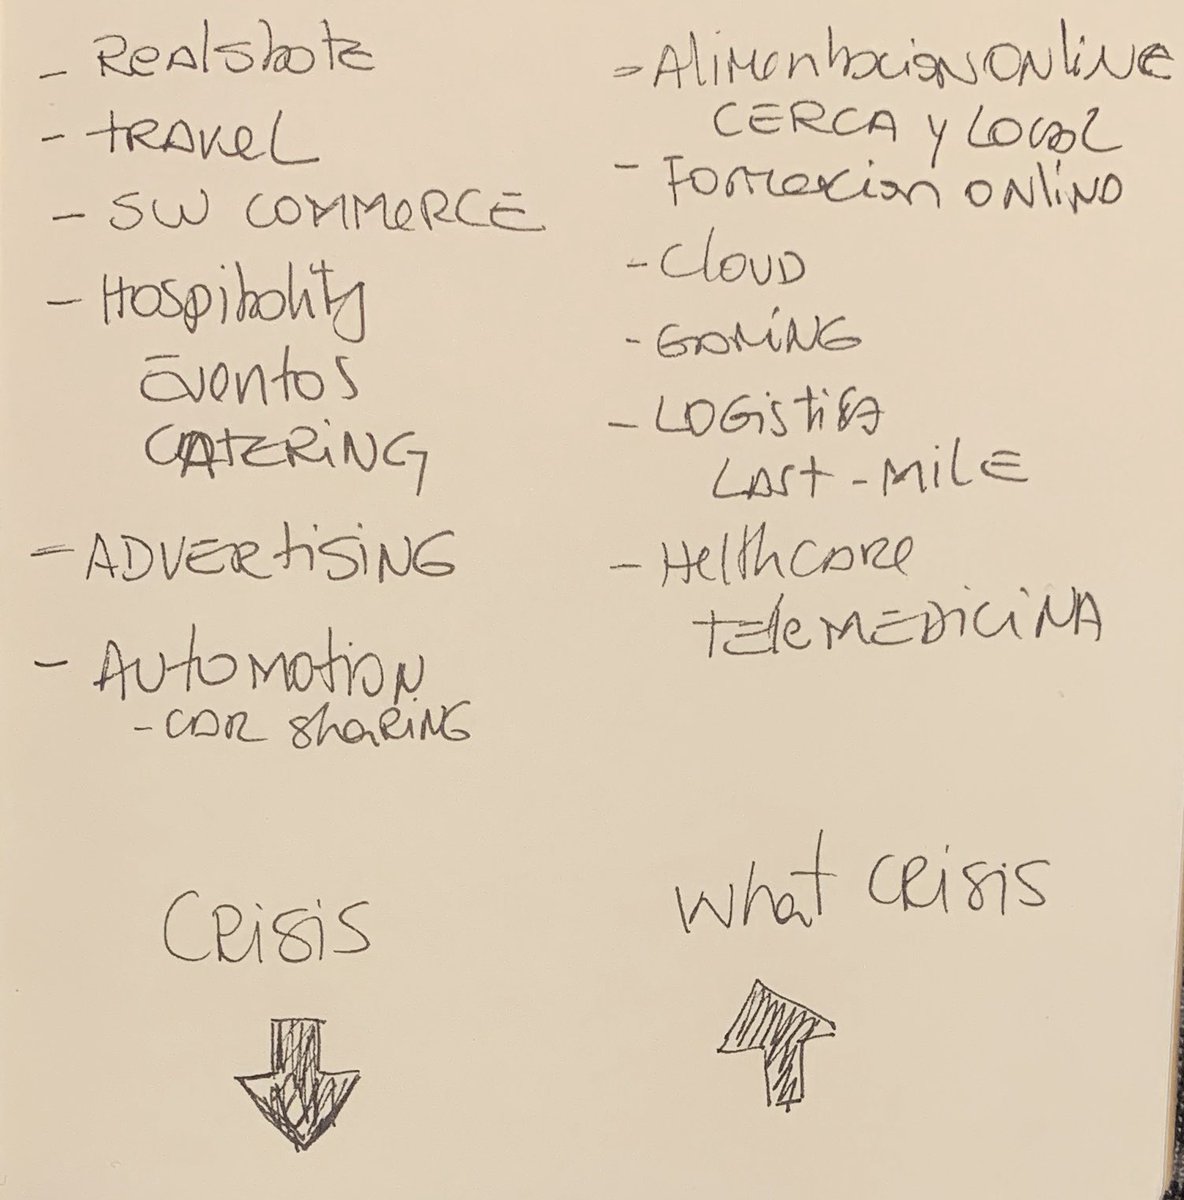 - Realstate
- TRAVEL
- SW COMMERCE
- Hospitality
Eventos
CATERING
= ADVERTISING
- Automotion
- CAR sharing
Crisis
= Alimentacion ONLINE
CERCA y Local
- Formacion ONLINE
- Cloud
- GAMING
- LOGISTICA
LAST-MILE
- Helthcare
TELEMEDICINA
What crisis